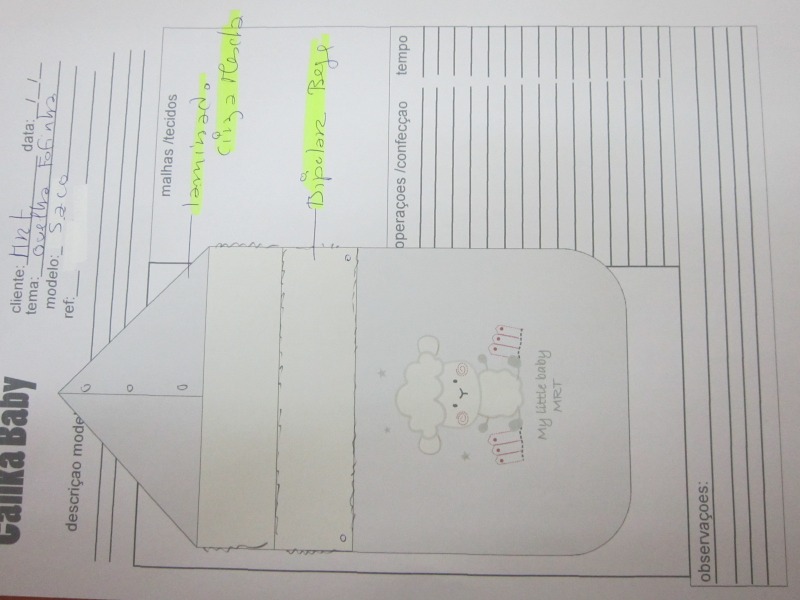 Calika Baby
cliente: MRT data: / /
tema: Ovelha Fofinha
modelo: Saco
ref:
descriçao mode
malhas /tecidos
laminado
Cinza Mescla
Bipolare Bege
operaçoes /confecçao tempo
My little baby
MRT
observaçoes: